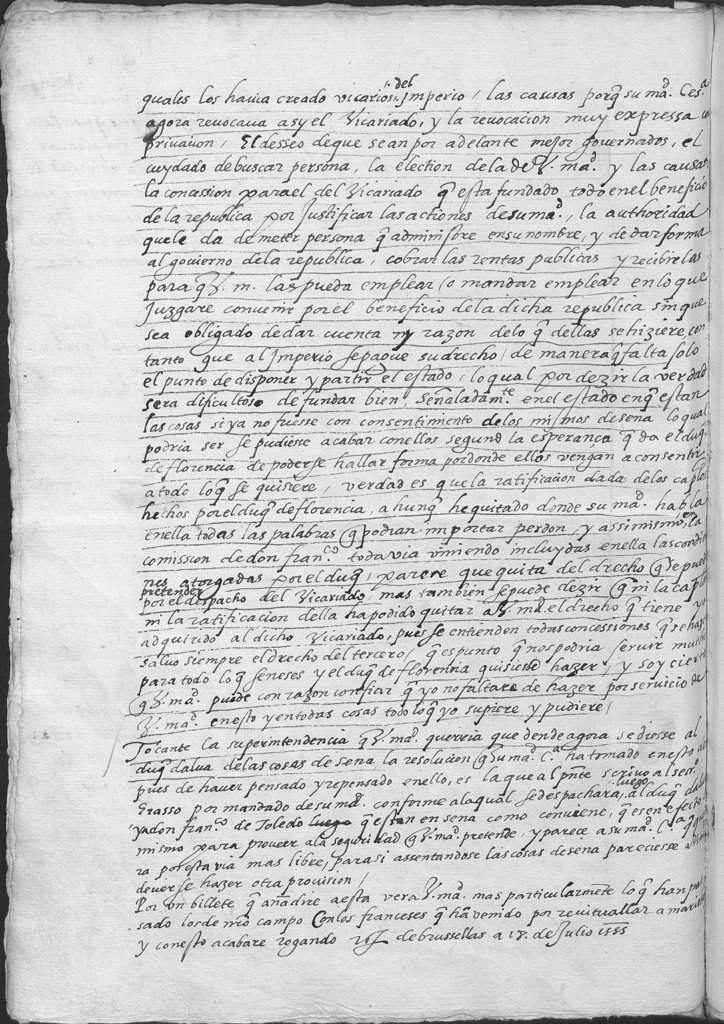 quales los havia creado vicarios del Imperio / las causas porq̃ su mad. Ces.a
agora revocava asy el Vicariado, y la revocacion muy expressa
privacion / El desseo de que sean por adelante mejor governados, el
cuydado de buscar persona, la election de la de V. mad. y las causas
la concession para el del Vicariado q̃ esta fundado todo en el beneficio
de la republica por Justificar las actiones de su mad., la authoridad
que le da de meter persona q̃ administre en su nombre, y de dar forma
al govierno de la republica, cobrar las rentas publicas y recibirlas
para q̃ V. m. las pueda emplear / o mandar emplear en lo que
Juzgare convenir por el beneficio de la dicha republica sin que
sea obligado de dar cuenta ny razon de lo q̃ dellas se hiziere, con
tanto que al Imperio se pague su drecho / de manera q̃ falta solo
el punto de disponer y partir el estado, lo qual por dezir la verdad
sera dificultoso de fundar bien señaladamte. en el estado en q̃ estan
las cosas si ya no fuesse con consentimiento de los mismos de sena lo qual
podria ser se pudiesse acabar con ellos segund la esperança q̃ da el duq̃
de florencia de poderse hallar forma por donde ellos vengan a consentir
a todo lo q̃ se quisiere, verdad es que la ratificacion dada de los caplos
hechos por el duq̃ de florencia, ahunq̃ he quitado donde su mad. habla
en ella todas las palabras q̃ podian importar perdon, y assi mismo en la
comission de don franco. todavia viniendo incluydas en ella las condicio
nes atorgadas por el duq̃, parece que quita del drecho q̃ se puede
pretender por el despacho del Vicariado, mas tambien se puede dezir q̃ ni la caplon
ni la ratificacion della ha podido quitar a V. md. el drecho q̃ tiene
adquirido al dicho Vicariado, pues se entienden todas concessiones q̃ se haze
salvo siempre el drecho del tercero, q̃ es punto q̃ nos podria servir mucho
para todo lo q̃ seneses y el duq̃ de florencia quisiesse hazer, y soy cierto
q̃ V. mad. puede con razon confiar q̃ yo no faltare de hazer por servicio de
V. mad. en esto y en todas cosas todo lo q̃ yo supiere y pudiere /
Tocante la superintendencia q̃ V. mad. querria que dende agora se diesse al
duq̃ dalva de las cosas de sena la resolucion q̃ su mad. C.a ha tomado en esto
pues de haver pensado y repensado en ello, es la que al pnte scrivo al secr.o
Erasso por mandado de su md. conforme a la qual se despachara luego al duq̃ dalva
ya don franco. de Toledo q̃ estan en sena como conviene, q̃ es en efecto
mismo para proveer a la seguridad q̃ V. mad. pretende, y parece a su mad. C.a q̃
ra por esta via mas libre, para si assentandose las cosas de sena pareciesse
dever se hazer otra provision /
Por un billete q̃ añadire a esta vera V. mad. mas particularmete lo q̃ han pas
sado los de nro campo con los franceses q̃ hã venido por revituallar a mariebourg
y con esto acabare rogando de brussellas a 18. de Julio 1555